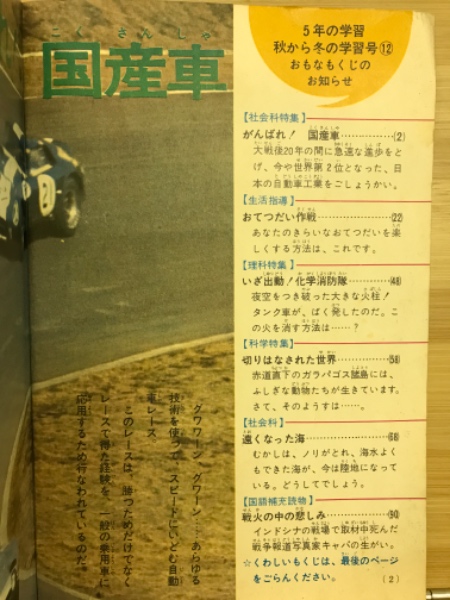 こくさんしゃ
国産車
グワワーン、グワーン……あらゆる
技術を使って、スピードにいどむ自動
車レース。
このレースは、勝つためだけでなく
レースで得た経験を、一般の乗用車に
応用するため行なわれているのだ。
5年の学習
秋から冬の学習号⑫
おもなもくじの
お知らせ
【社会科特集】
がんばれ! 国産車……………(2)
大戦後20年の間に急速な進歩をと
げ、今や世界第2位となった、日
本の自動車工業をごしょうかい。
【生活指導】
おてつだい作戦………………(22)
あなたのきらいなおてつだいを楽
しくする方法は、これです。
【理科特集】
いざ出動!化学消防隊…………(48)
夜空をつき破った大きな火柱!
タンク車が、ばく発したのだ。こ
の火を消す方法は……?
【科学特集】
切りはなされた世界……………(58)
赤道直下のガラパゴス諸島には、
ふしぎな動物たちが生きています。
さて、そのようすは……。
【社会科】
遠くなった海……………………(68)
むかしは、ノリがとれ、海水よく
もできた海が、今は陸地になって
いる。どうしてでしょう。
【国語補充読物】
戦火の中の悲しみ………………(90)
インドシナの戦場で取材中死んだ
戦争報道写真家キャパの生がい。
☆くわしいもくじは、最後のページ
をごらんください。
(2)